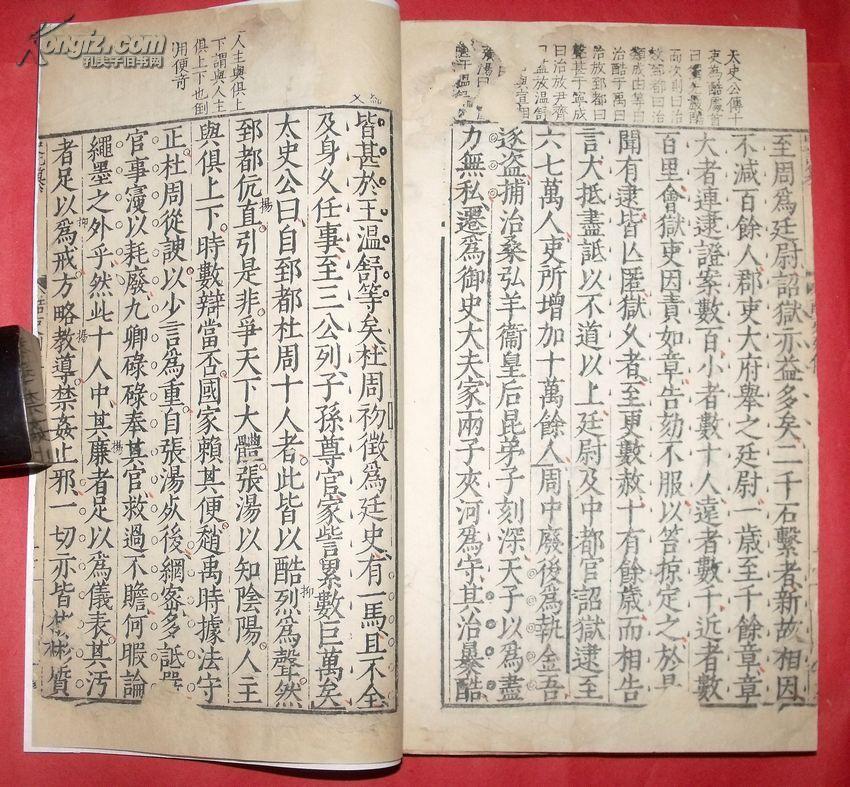 Kongfz.com
孔夫子旧书网
太史公傳十
吏為酷處首
曰
而次則曰治
郅都曰治
類成由等曰
治酷于禹曰
治放郅都曰
曰治放尹齊
聲甚于寧成
曰益放溫舒
至周爲廷尉詔獄亦益多矣二千石繫者新故相因
不減百餘人郡吏大府舉之廷尉一歲至千餘章章
大者連逮證案數百小者數十人遠者數千近者數
百里會獄吏因責如章告劾不服以笞掠定之於是
聞有逮皆亾匿獄久者至更數赦十有餘歲而相告
言大抵盡詆以不道以上廷尉及中都官詔獄逮至
六七萬人吏所增加十萬餘人周中廢後爲執金吾
逐盗捕治桑弘羊衞皇后昆弟子刻深天子以爲盡
力無私遷爲御史大夫家兩子夾河爲守其治暴酷
人主與俱上
下謂與人主
俱上下也倒
用便奇
皆甚於王温舒等矣杜周初徵爲廷史有一馬且不全
及身久任事至三公列子孫尊官家訾累數巨萬矣
太史公曰自郅都杜周十人者此皆以酷烈爲聲然
郅都伉直引是非爭天下大體張湯以知陰陽人主
與俱上下時數辯當否國家賴其便趙禹時據法守
正杜周從諛以少言爲重自張湯死後網密多詆嚴
官事寖以耗廢九卿碌碌奉其官救過不贍何暇論
繩墨之外乎然此十人中其廉者足以爲儀表其汚
者足以爲戒方略教導禁姦止邪一切亦皆彬彬質
抑
揚
抑
揚
揚